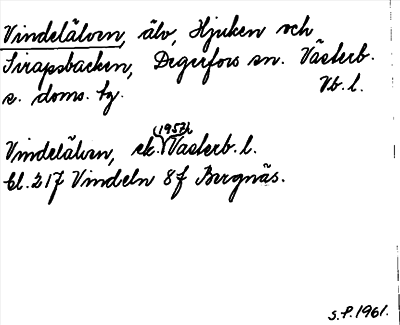 Vindelälven, älv, Hjuken och
Sirapsbacken, Degerfors sn. Västerb.
s. doms. hg. Vb. l.
Vindelälven, ek. (1957) Västerb. l.
bl. 217 Vindeln 8f Bergnäs.
S.P. 1961.